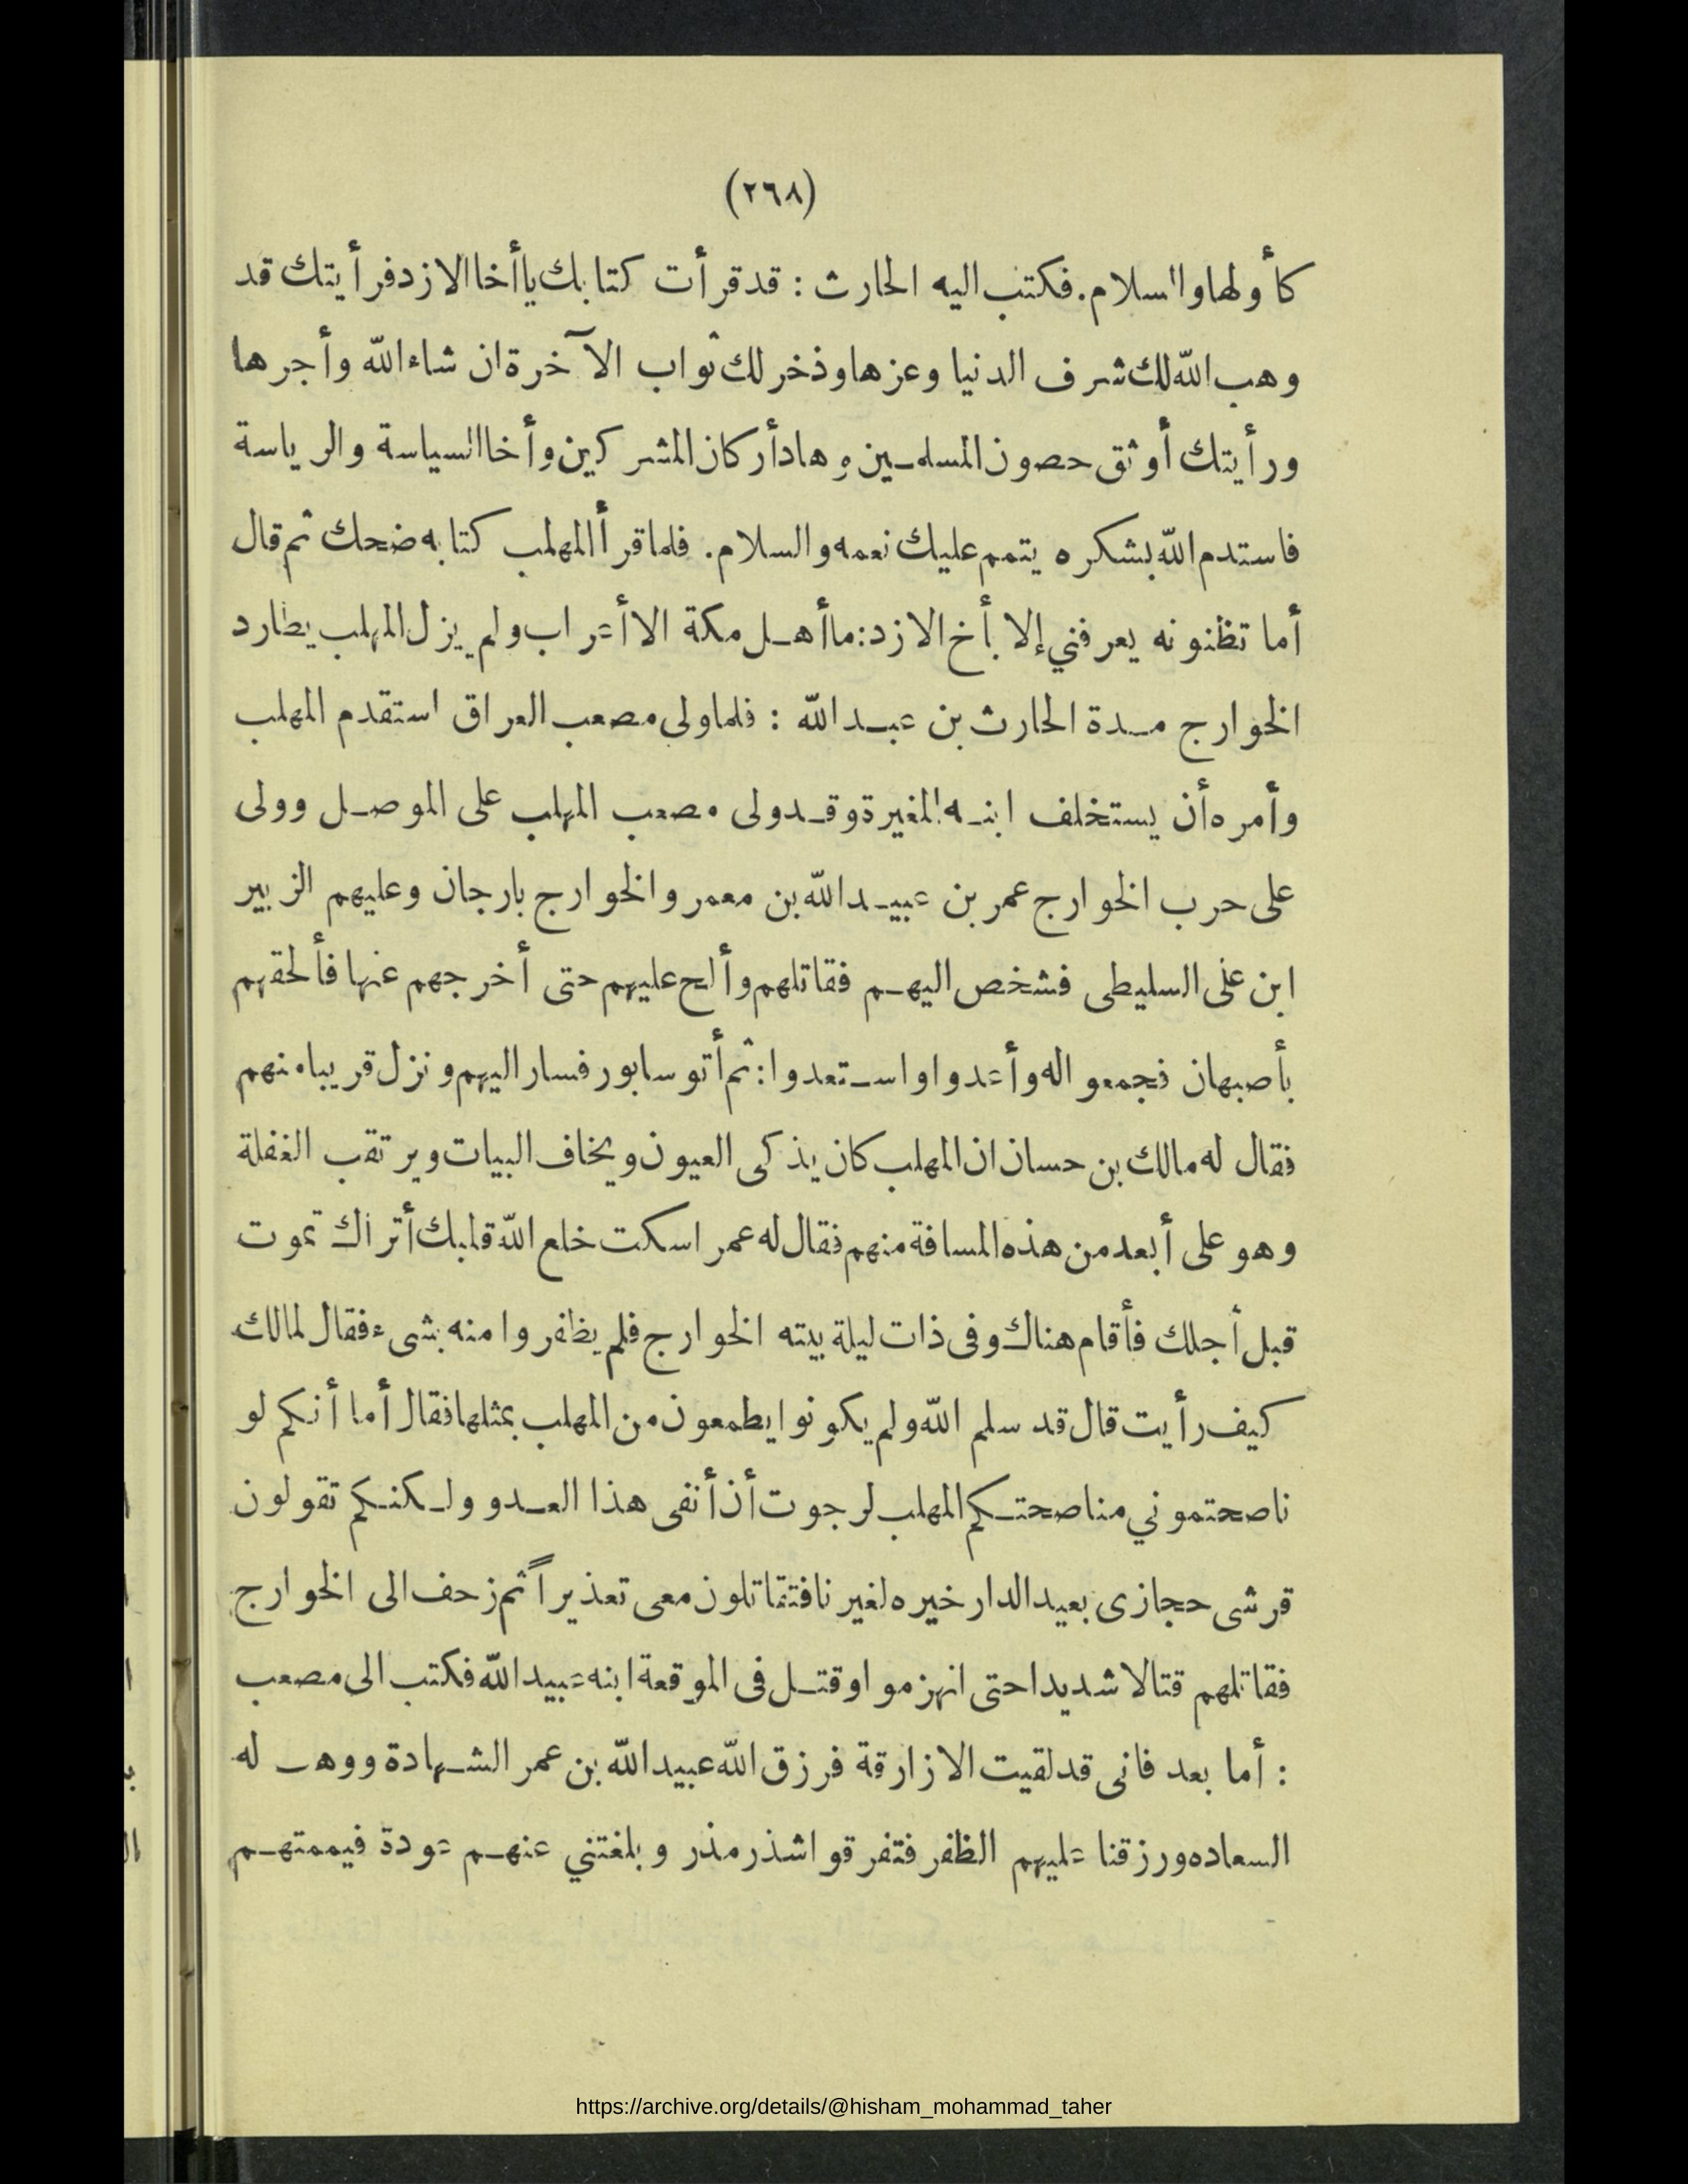 (٢٦٨)
كأولها والسلام. فكتب اليه الحارث : قد قرأت كتابك يا أخا الازد فرأيتك قد
وهب الله لك شرف الدنيا وعزها وذخر لك ثواب الآخرة ان شاء الله وأجرها
ورأيتك أوثق حصون المسلمين وهاد أركان المشركين وأخا السياسة والرياسة
فاستدم الله بشكره يتمم عليك نعمه والسلام. فلما قرأ المهلب كتابه ضحك ثم قال
أما تظنونه يعرفني إلا بأخ الازد: ما أهل مكة الا أعراب ولم يزل المهلب يطارد
الخوارج مدة الحارث بن عبد الله : فلما ولى مصعب العراق استقدم المهلب
وأمره أن يستخلف ابنه المغيرة وقد ولى مصعب المهلب على الموصل وولى
على حرب الخوارج عمر بن عبيد الله بن معمر والخوارج بارجان وعليهم الزبير
ابن على السليطى فشخص اليهم فقاتلهم وألح عليهم حتى أخرجهم عنها فألحقهم
بأصبهان فجمعوا له وأعدوا واستعدوا: ثم أتو سابور فسار اليهم ونزل قريبا منهم
فقال له مالك بن حسان ان المهلب كان يذكى العيون ويخاف البيات ويرتقب الغفلة
وهو على أبعد من هذه المسافة منهم فقال له عمر اسكت خلع الله قلبك أتراك تموت
قبل أجلك فأقام هناك وفى ذات ليلة بيته الخوارج فلم يظفروا منه بشىء فقال لمالك
كيف رأيت قال قد سلم الله ولم يكونوا يطمعون من المهلب بمثلها فقال أما أنكم لو
ناصحتموني مناصحتكم المهلب لرجوت أن أنفى هذا العدو ولكنكم تقولون
قرشى حجازى بعيد الدار خيره لغيرنا فتقاتلون معى تعذيراً ثم زحف الى الخوارج
فقاتلهم قتالا شديدا حتى انهزموا وقتل فى الموقعة ابنه عبيد الله فكتب الى مصعب
: أما بعد فانى قد لقيت الازارقة فرزق الله عبيد الله بن عمر الشهادة ووهب له
السعاده ورزقنا عليهم الظفر فتفرقوا شذر مذر وبلغتني عنهم عودة فيممتهم
https://archive.org/details/@hisham_mohammad_taher